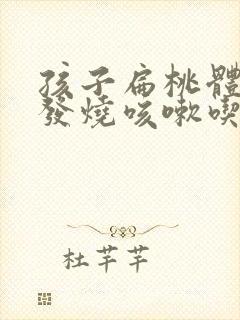 孩子扁桃體
發燒咳嗽喫
杜芊芊